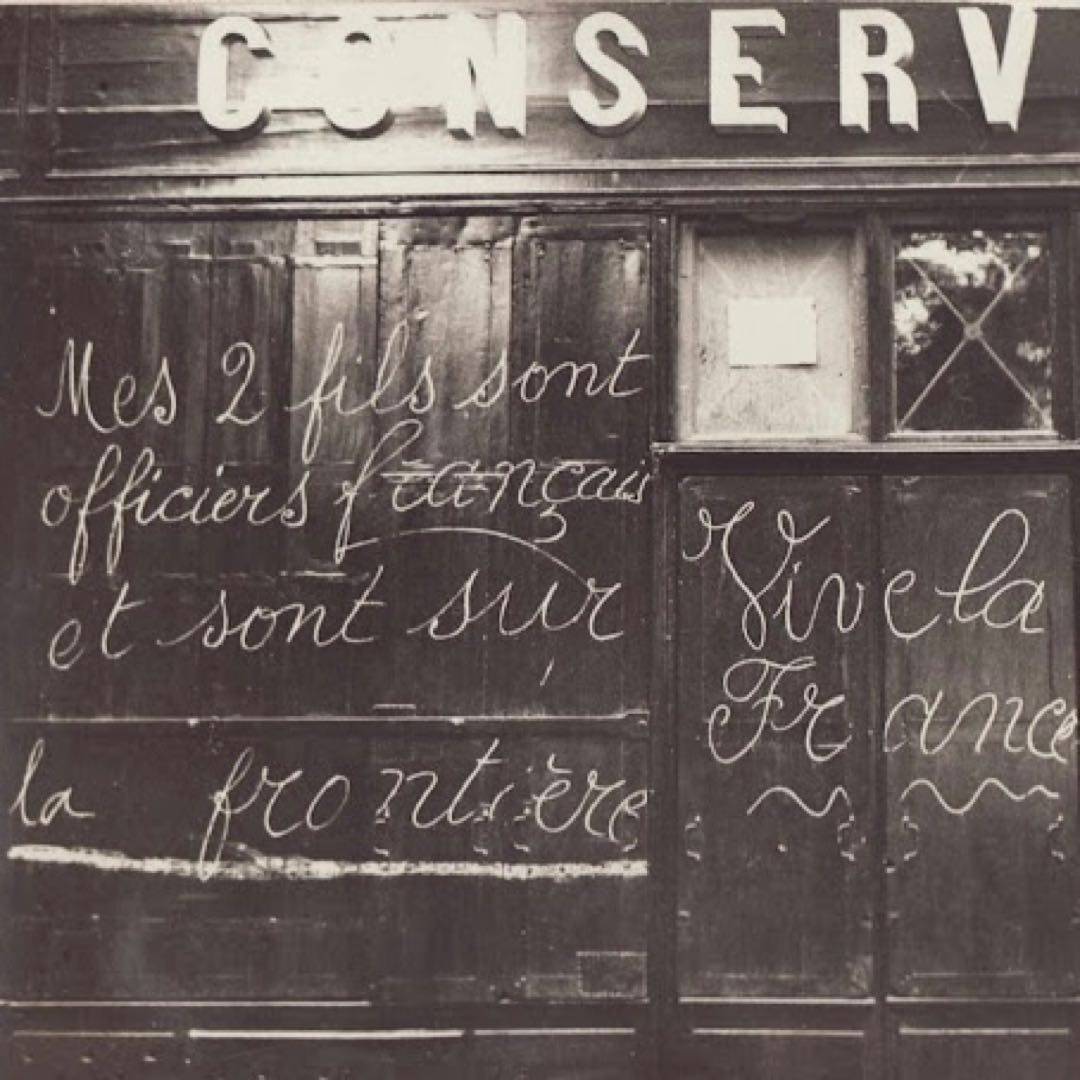 CONSERV
Mes 2 fils sont
officiers français
et sont sur
la frontière
Vive la
France